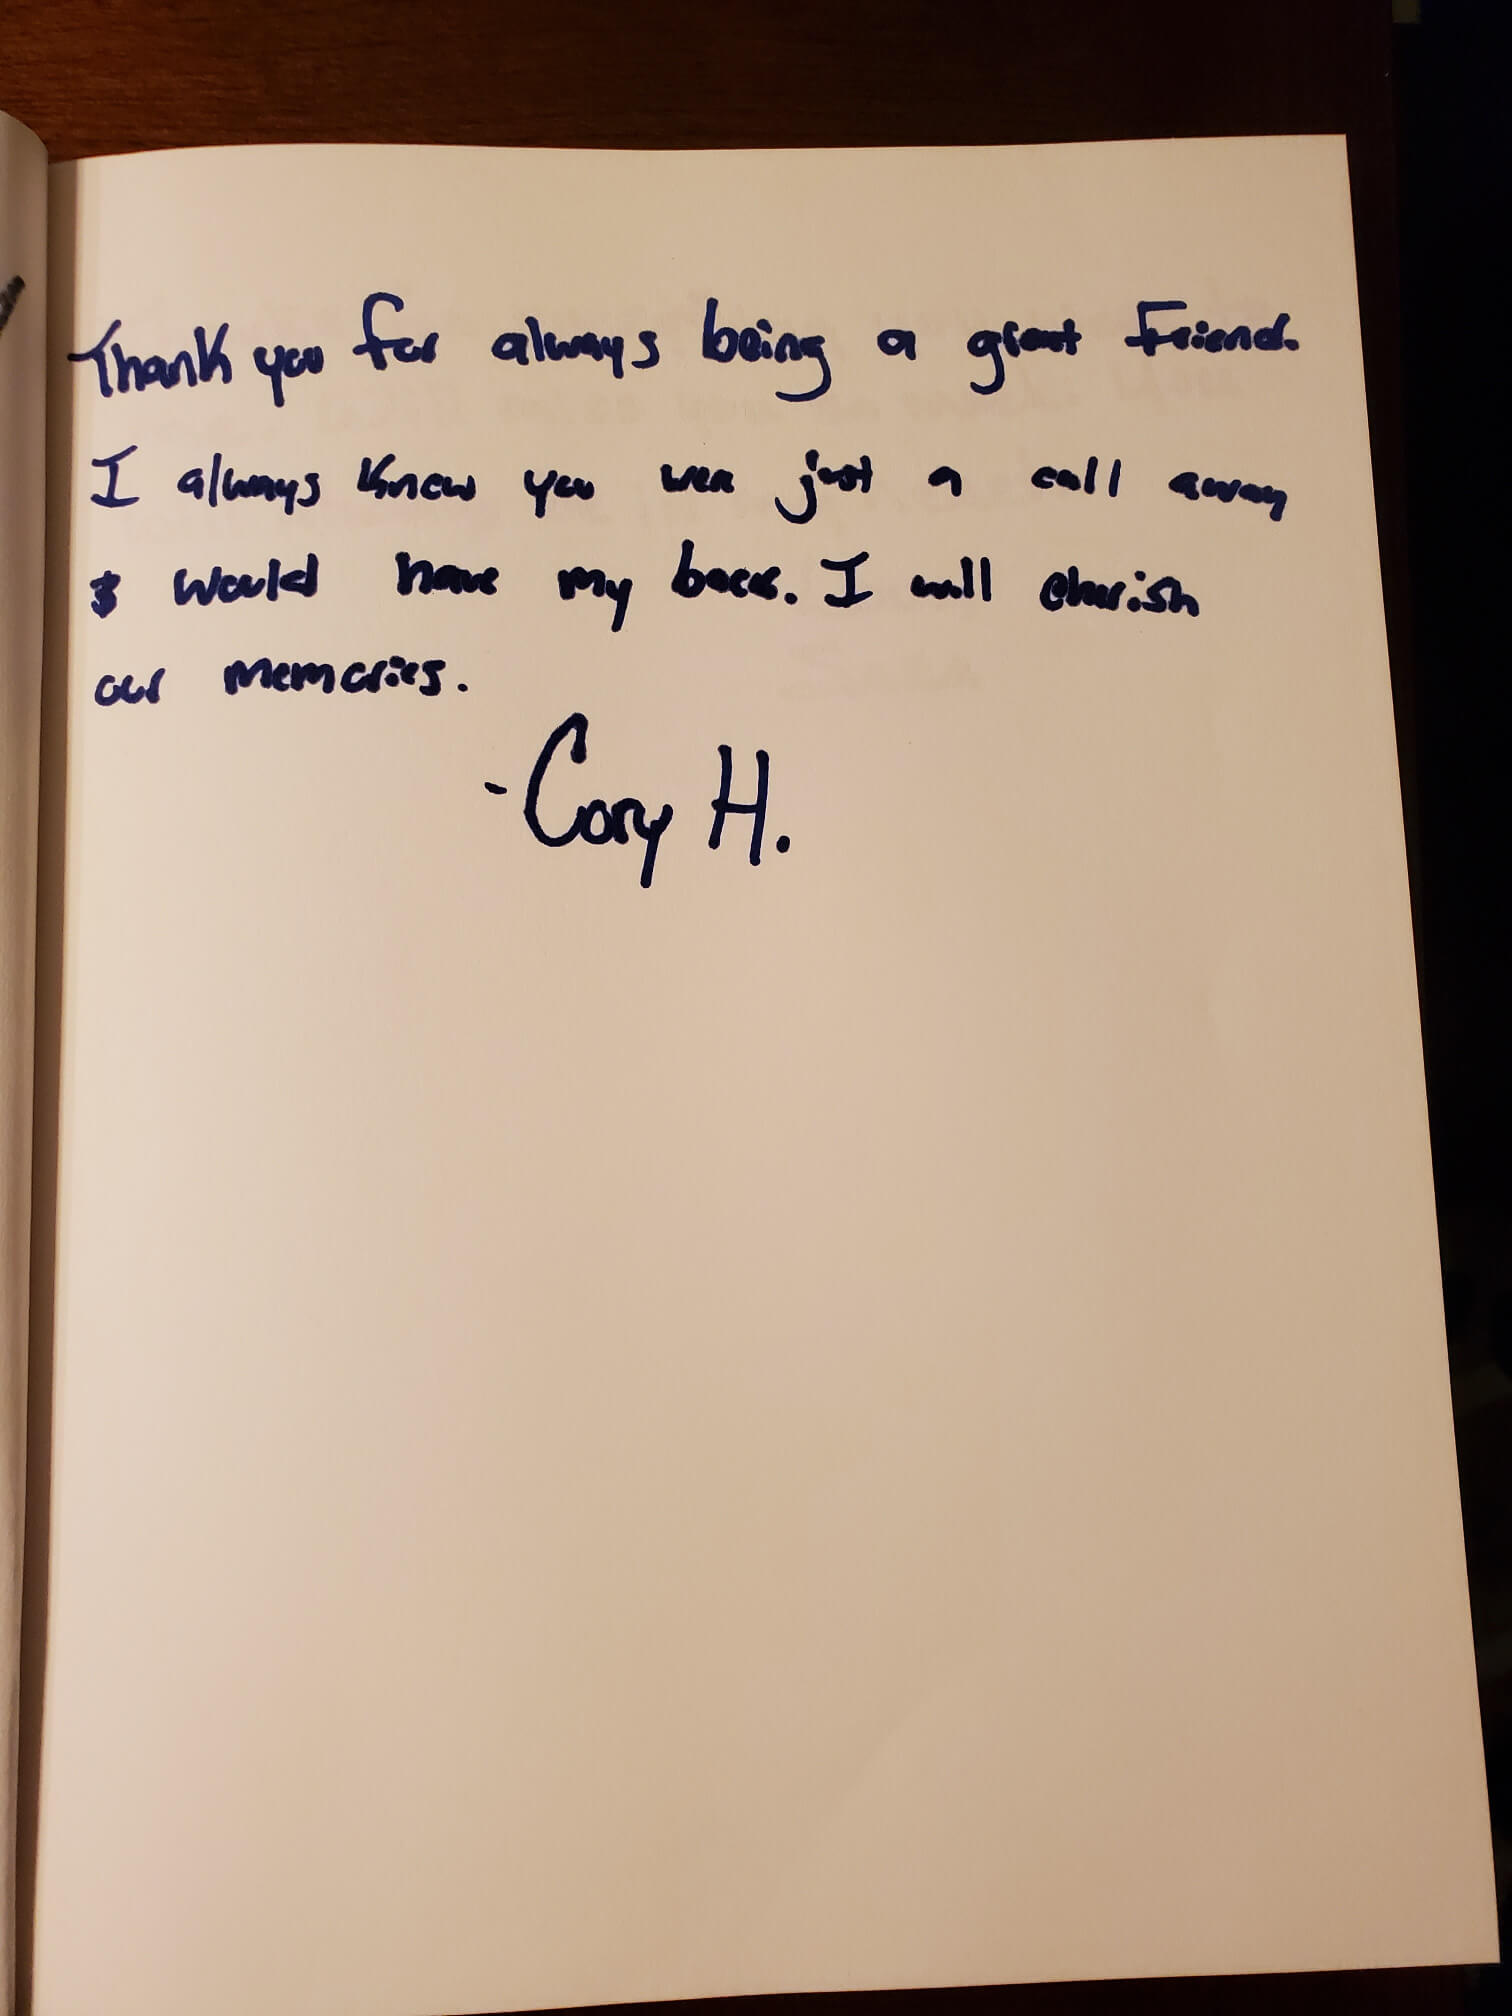 Thank you for always being a great Friend.
I always Know you were just a call away
& would have my back. I will cherish
our memories.
- Cory H.